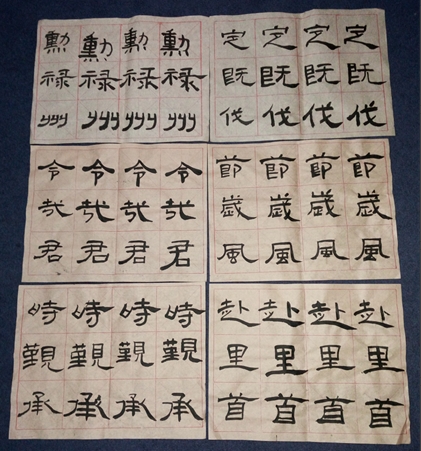 勳勳勳勳
禄禄禄禄
州州州州
定定定定
既既既既
伐伐伐伐
令令令令
哉哉哉哉
君君君君
節節節節
歲歲歲歲
風風風風
時時時時
覲覲覲覲
承承承承
赴赴赴赴
里里里里
首首首首